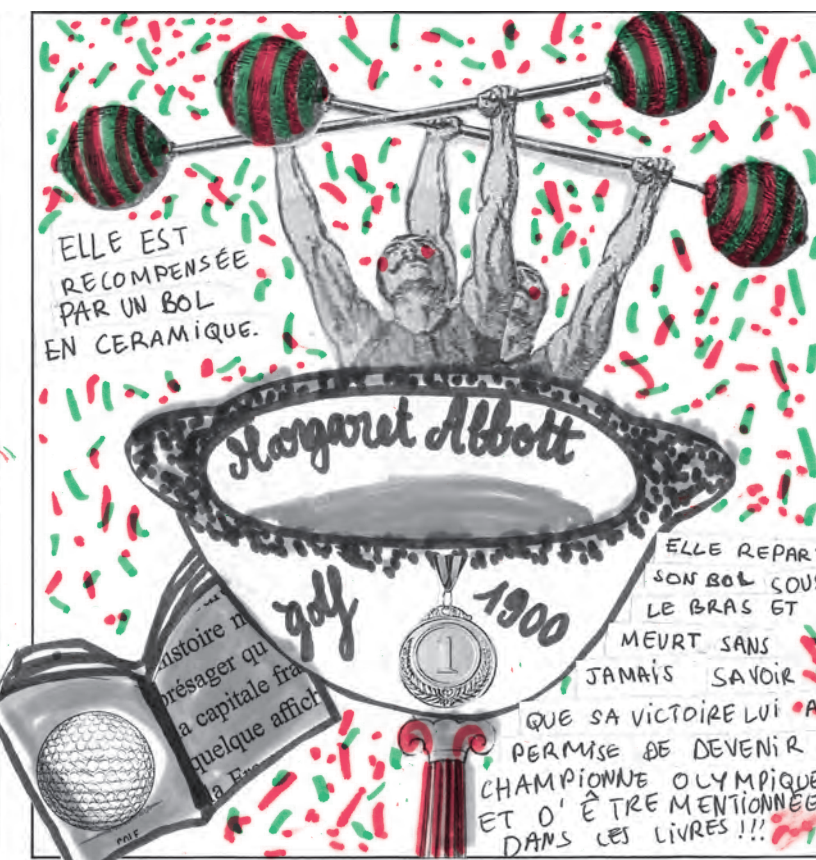 ELLE EST
RECOMPENSÉE
PAR UN BOL
EN CERAMIQUE.
Margaret Abbott
golf
1900
1
histoire
présager qu
a capitale fra
quelque affich
la Fra
ELLE REPART
SON BOL SOUS
LE BRAS ET
MEURT SANS
JAMAIS SAVOIR
QUE SA VICTOIRE LUI A
PERMISE DE DEVENIR
CHAMPIONNE OLYMPIQUE
ET D'ÊTRE MENTIONNÉE
DANS LES LIVRES !!!